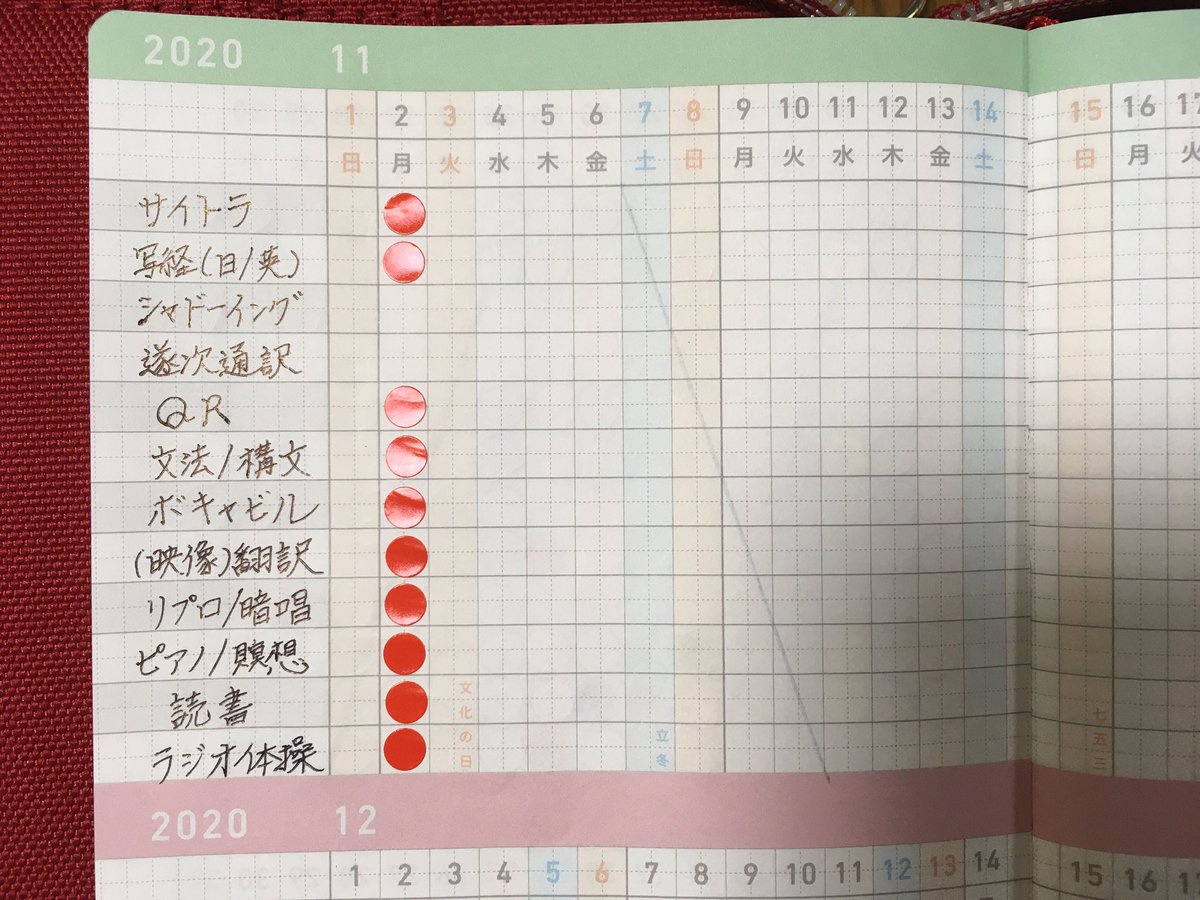 2020 11
1 2 3 4 5 6 7 8 9 10 11 12 13 14 15 16
日 月 火 水 木 金 土 日 月 火 水 木 金 土 日 月 火
サイトラ
写経(日/英)
シャドーイング
逐次通訳
QR
文法/構文
ボキャビル
(映像)翻訳
リプロ/暗唱
ピアノ/瞑想
読書
ラジオ体操
文化の日
立冬
七五三
2020 12
1 2 3 4 5 6 7 8 9 10 11 12 13 14 15 16